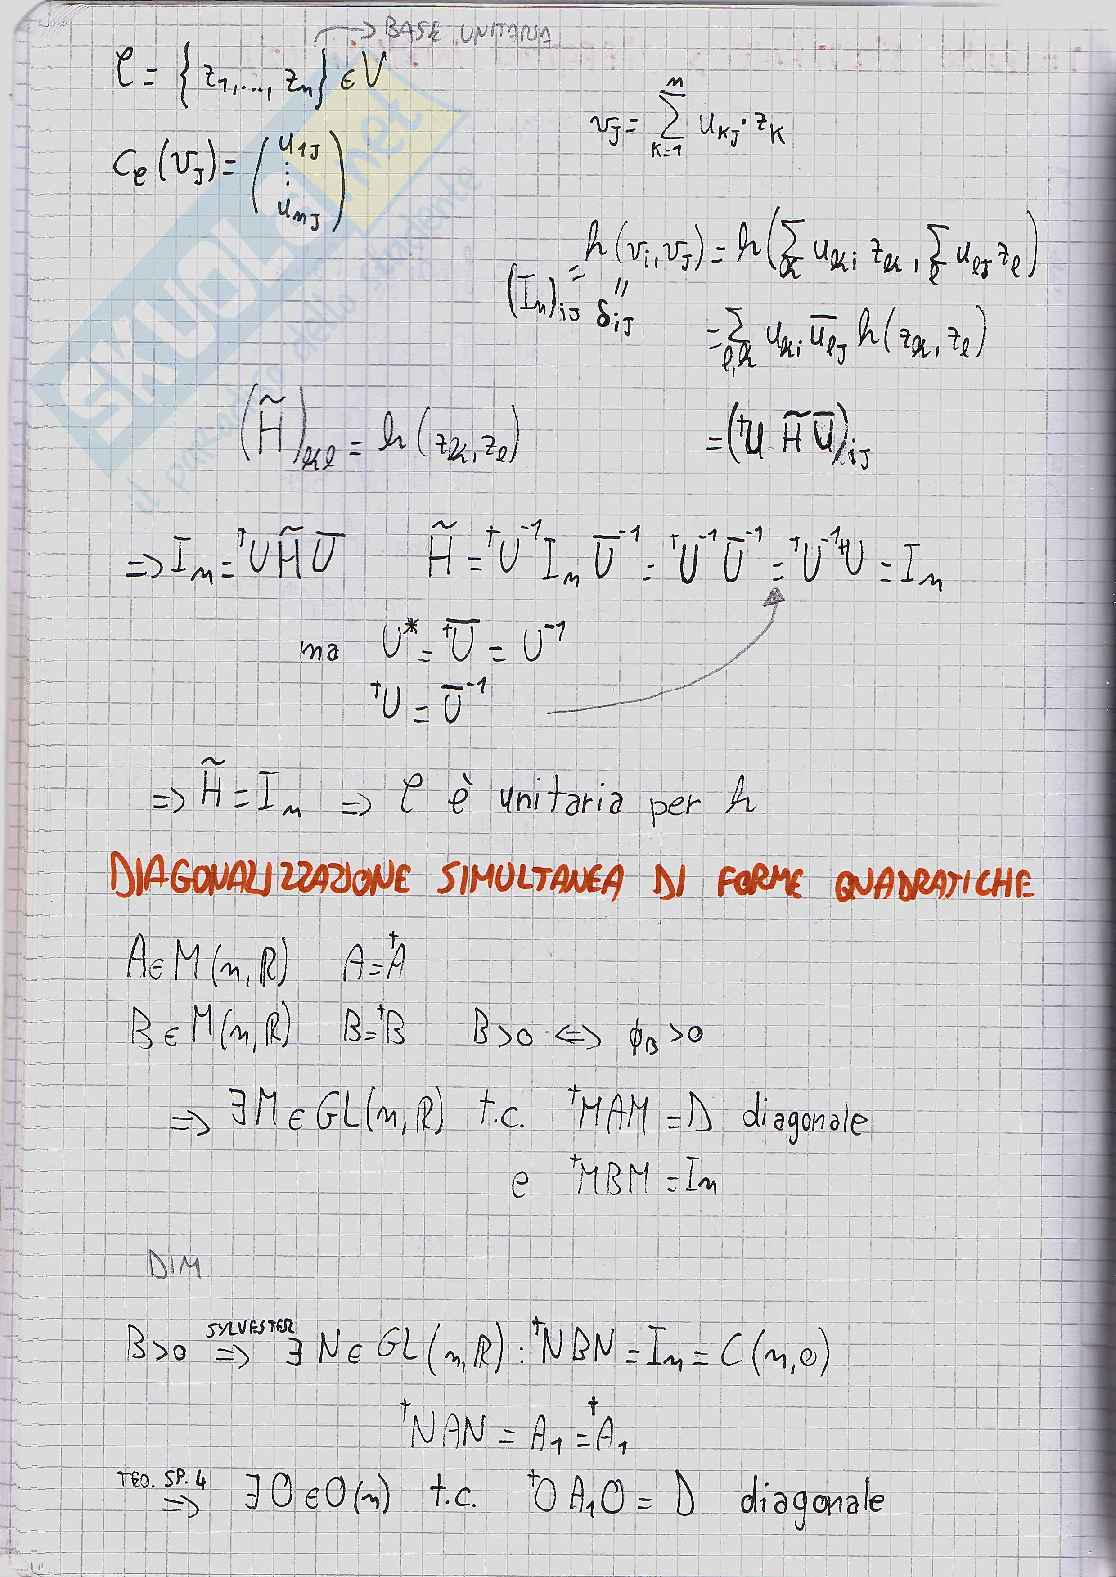 → BASE UNITARIA
𝒞 = {z₁,..., zₙ} ∈ V
vⱼ = ∑ₖ₌₁ⁿ uₖⱼ · zₖ
C𝒞(vⱼ) = (u₁ⱼ ⋮ uₙⱼ)
h(vᵢ, vⱼ) = h(∑ₖ uₖᵢ zₖ, ∑ₗ uₗⱼ zₗ)
(Iₙ)ᵢⱼ = δᵢⱼ
= ∑ₗ,ₖ uₖᵢ u̅ₗⱼ h(zₖ, zₗ)
(H̃)ₖₗ = h(zₖ, zₗ)
= (ᵗU H̃ U̅)ᵢⱼ
⇒ Iₙ = ᵗU H̃ U̅ H̃ = ᵗU⁻¹ Iₙ U̅⁻¹ = ᵗU⁻¹ U̅⁻¹ = ᵗU⁻¹ ᵗU = Iₙ
ma U* = ᵗU̅ = U⁻¹
ᵗU = U̅⁻¹
⇒ H̃ = Iₙ ⇒ 𝒞 è unitaria per h
DIAGONALIZZAZIONE SIMULTANEA DI FORME QUADRATICHE
A ∈ M(n, ℝ) A = ᵗA
B ∈ M(n, ℝ) B = ᵗB B > 0 ⇔ ϕ_B > 0
⇒ ∃ M ∈ GL(n, ℝ) t.c. ᵗMAM = D diagonale
e ᵗMBM = Iₙ
DIM
B > 0 SYLVESTER ⇒ ∃ N ∈ GL(n, ℝ) : ᵗNBN = Iₙ = C(n, 0)
ᵗNAN = A₁ = ᵗA₁
TEO. SP. 4 ⇒ ∃ O ∈ O(n) t.c. ᵗO A₁ O = D diagonale
SKUOLA.net